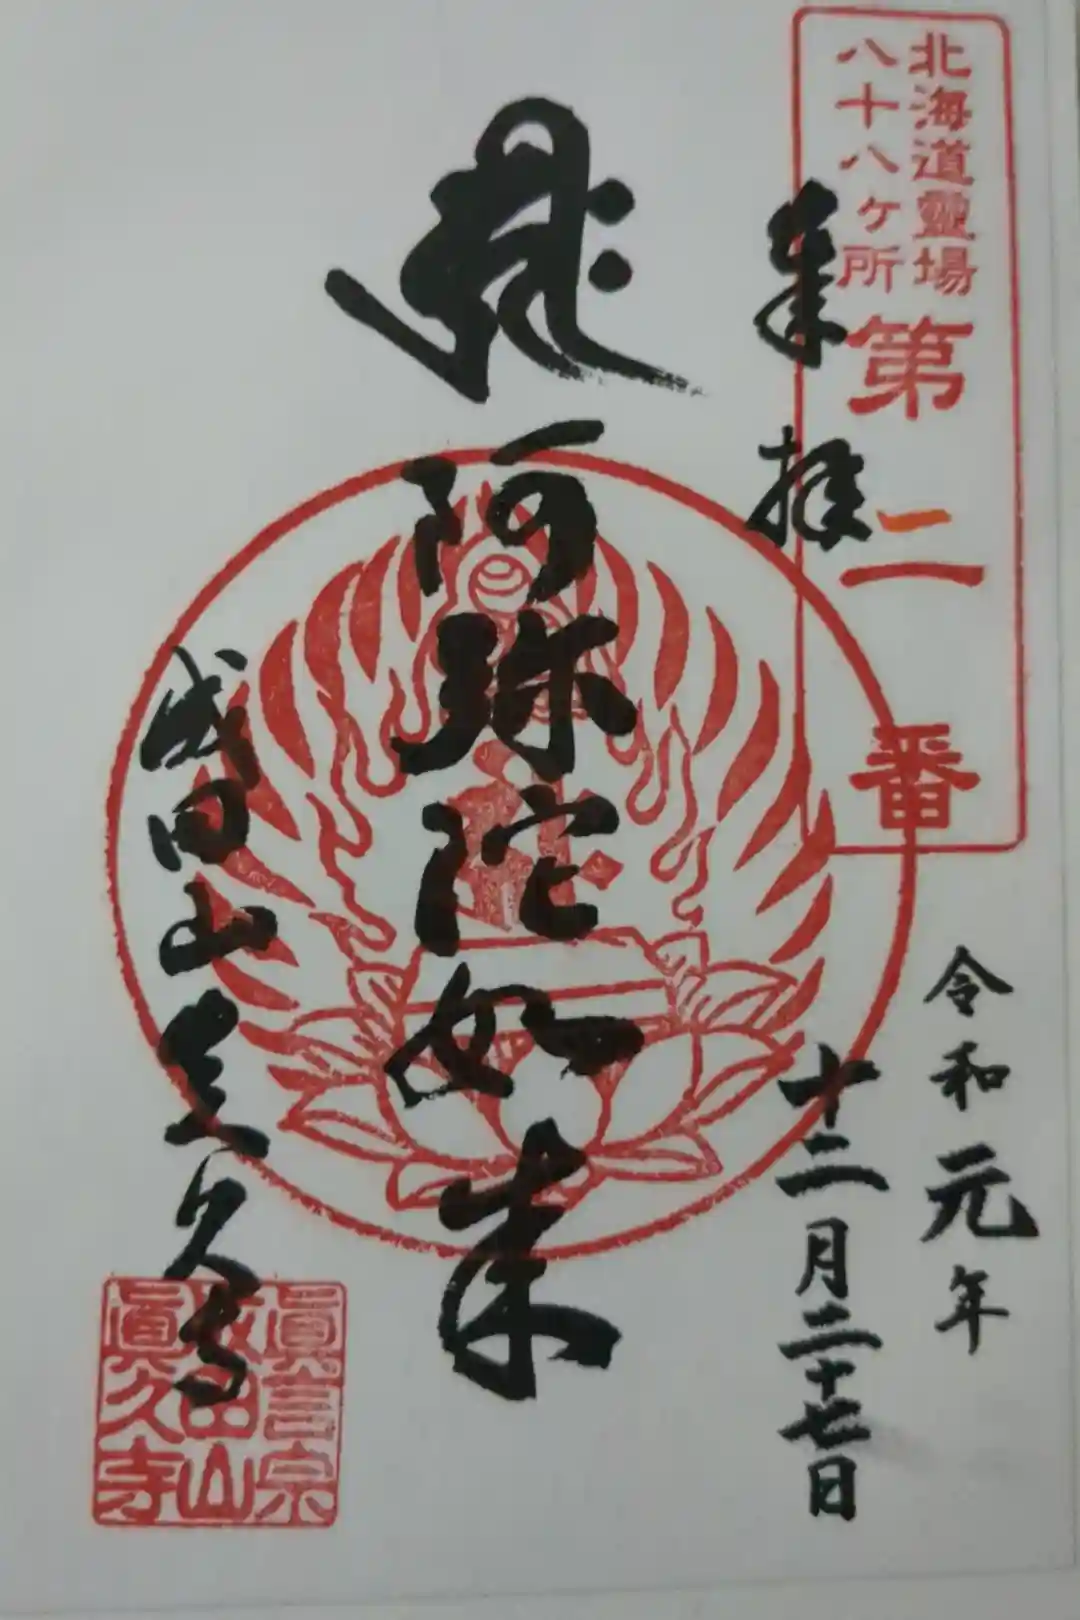 北海道靈場
八十八ヶ所
第二番
奉拝
令和元年
十二月二十七日
阿弥陀如来
成田山真久寺
眞言宗
成田山
眞久寺